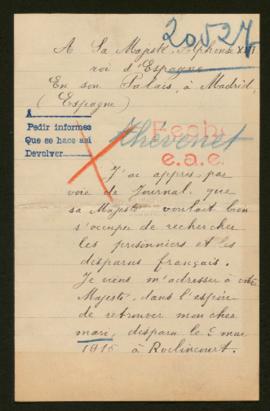 20527
A Sa Majesté Alphonse XIII
roi d'Espagne
En son Palais, à Madrid,
(Espagne)
A
Pedir informes
Que se hace así
Devolver
Fecho
e.a.c.
Thevenet
J'ai appris par
voie de Journal, que
sa Majesté voulait bien
s'occuper de rechercher
les prisonniers et les
disparus français.
Je viens m'adresser à votre
Majesté, dans l'espoir
de retrouver mon cher
mari, disparu le 9 mai
1915 à Roclincourt.